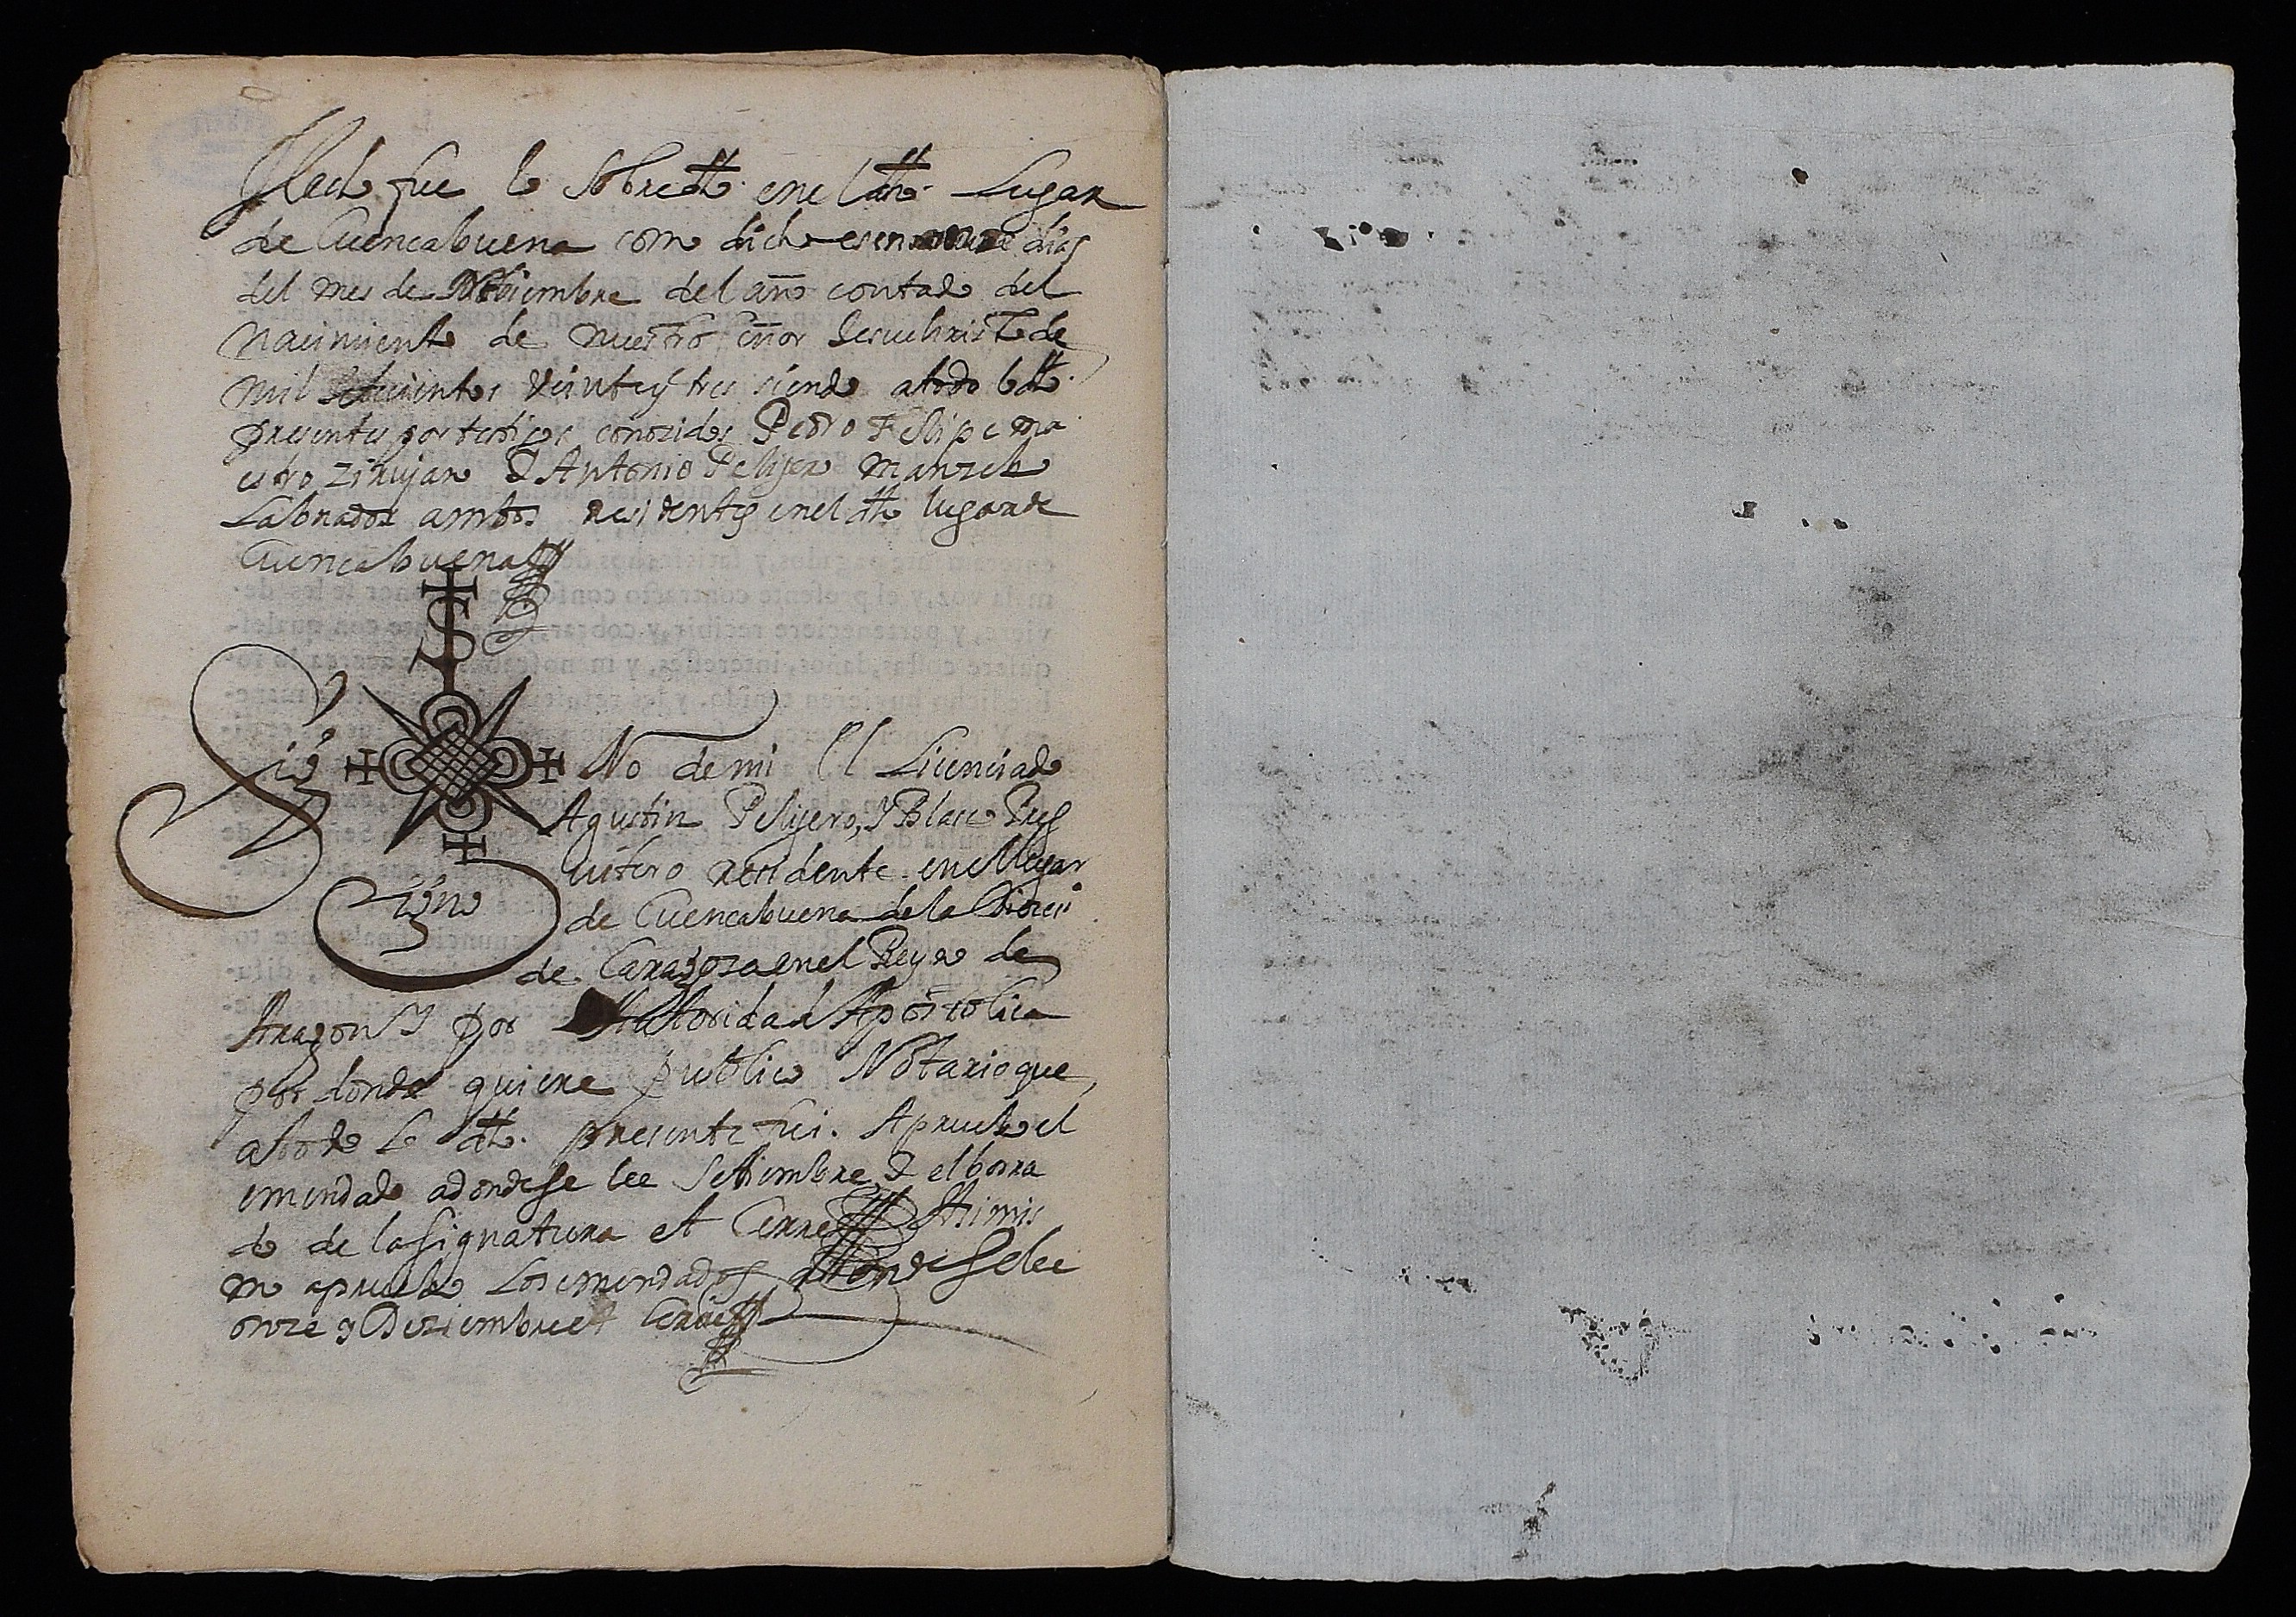 Hecho fue lo Sobredho. en el dho. Lugar
de Cuencabuena como dicho es en onze dias
del mes de Deziembre del año contado del
Nacimiento de nuestro señor Jesuchristo de
mil Setecientos veinte y tres siendo a todo lo dho.
presentes por testigos conozidos Pedro Felipe ma
estro zirujano & Antonio Pelijero Manzebo
Labrador ambos residentes en el dho lugar de
Cuencabuena
IS
Sig No de mi El Licenciado
Agustin Pelijero, y Blasco Pres
vitero residente en el lugar
de Cuencabuena de la Diozesi
de Caragoza en el Reyno de
Aragon Y por Autoridad Apostolica
por donde quiere publico Notario que
a todo lo dho. presente fui. Apruebo el
emendado adonde se lee Setiembre & el borra
do de la signatura et Cerre Asimis
mo apruebo Los emendados adonde se lee
onze y Deziembre et Cerre